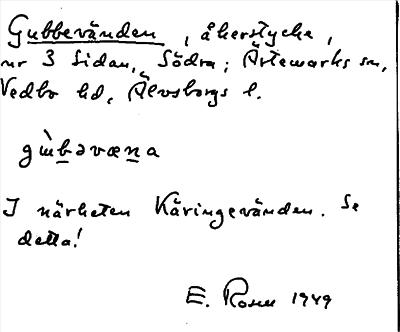 Gubbevänden, åkerstycke,
nr 3 Sidan, Södra; Ärtemarks sn,
Vedbo hd, Älvsborgs l.
gùbəvæna
I närheten Käringevänden. Se
detta!
E. Rosen 1949